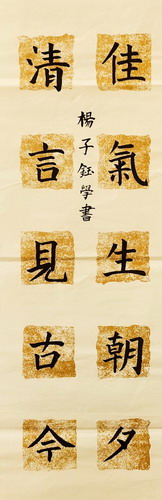 佳氣生朝夕
清言見古今
楊子鈺學書